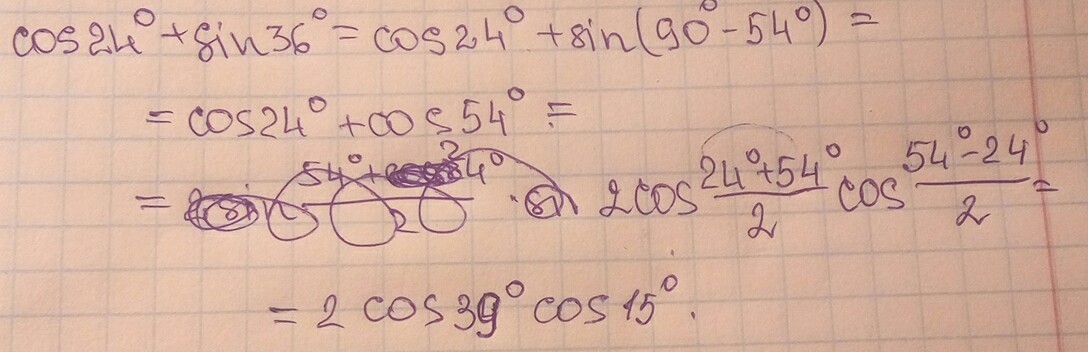 cos24° + sin36° = cos24° + sin(90° - 54°) =
= cos24° + cos54° =
= 2cos (24° + 54°)/2 cos (54° - 24°)/2 =
= 2 cos39° cos15°.